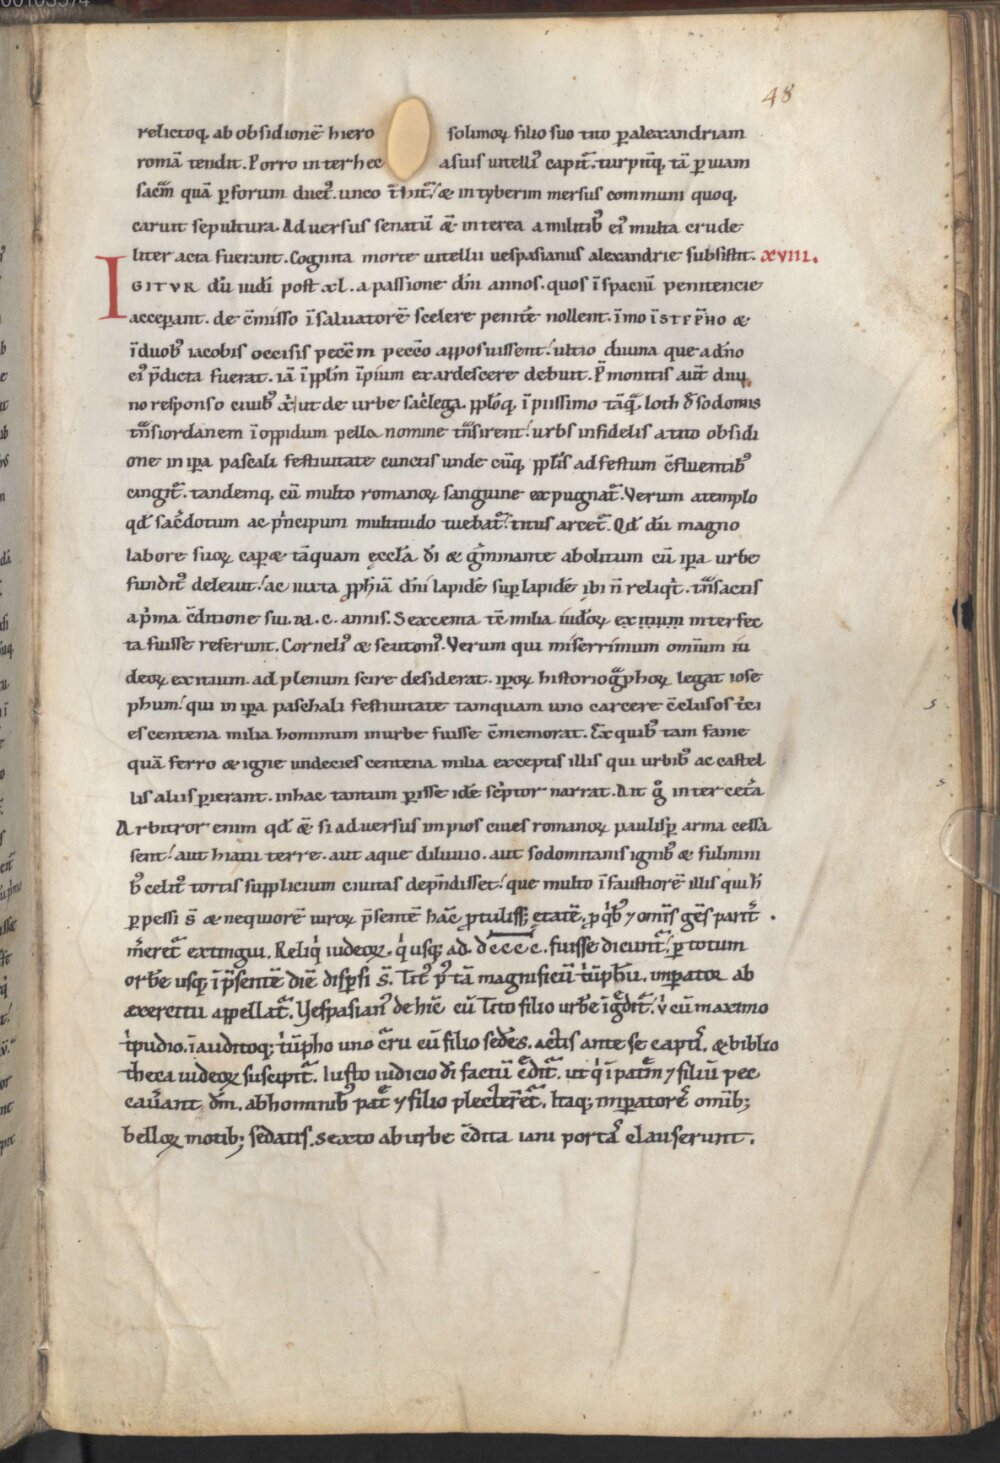 48
relictoq, ab obsidionē hiero solimoꝝ filio suo tito ꝑ alexandriam
romā tendit. Porro inter hec asius uitelli᷒ capit᷑. turpitq̄, tā ꝑ uiam
sac̄m quā ꝑ forum duct᷒. unco t̄hit᷑! & in tyberim mersus communi quoq,
caruit sepultura. Aduersus senatū &̄ interea a militib᷒ ei᷒ multa crude
liter acta fuerant. Cognita morte uitellii uespasianus alexandrie subsistit. xviii.
IGITVR dū iudi post xl. a passione dn̄i annos. quos ī spaciū penitencie
acceꝑant. de c̄misso ī saluatorē scelere penite nollent. īmo ī STEPHO &
ī duob᷒ iacobis occisis pecc̄m pecc̄o apposuissent! ultio diuina que adn̄o
ei᷒ p̄dicta fuerat. iā ī ppl̄m īpium exardescere debuit. P̄monitis aut̄ diuı
no responso ciuib᷒ xi ut de urbe sac̄lega, ppl̄oq, īpiissimo tāq̄, loth d̄ sodomis
tn̄s iordanem ī oppidum pella nomine tn̄sirent! urbs infidelis a tito obsidi
one in ip̄a pascali festiuitate cunctis unde cūq, ppl̄is ad festum c̄fluentib᷒
cingit᷑. tandemq, cū multo romanoꝝ sanguine expugnat᷑. Verum a templo
qd̄ sac̄dotum ac p̄ncipum multitudo tuebat᷑! titus arcet᷑. Qd̄ dū magno
labore suoꝝ caꝑ& tāquam ęccl̄a dī & g̃minante abolitum cū ip̄a urbe
fundit᷒ deleuit! ac iuxta ꝓph̄iā dn̄i lapidē suꝑ lapidē ibi n̄ reliqt. tn̄sactis
a pma c̄ditione sui. M. c. annis. Sexcenta tc̄ milia iud̄oꝝ ex inter fec
ta fuisse referunt. Corneli᷒ & seutoni᷒. Verum qui miserrimum omium iu
deoꝝ exitium. ad plenum scire desiderat. ip̄oꝝ historiog̃phoꝝ legat iose
phum! qui in ip̄a paschali festiuitate tamquam uno carcere c̄clusos tci
es centena milia hominum in urbe fuisse c̄memorat. Ex quib᷒ tam fame
quā ferro & igne undecies centena milia exceptis illis qui urbib᷒ ac castel
lis aliis ꝑierant. in hac tantum ꝑisse idē sc̄ptor narrat. Ait g̊ inter cet̄a
Arbitror enim qd̄ &̄ si aduersus impios ciues romanoꝝ paulisꝑ arma cessa
sent! aut hiatu terre. aut aque diluuio. aut sodomitanis ignib᷒ & fulmini
b᷒ celit᷒ tortis supplicium ciuitas depn̄disset! que multo ī faustiorē illis qui h̄
ꝑ pessi s̄ & nequiorē uiroꝝ p̄sentē hāc ꝓtuliss; etatē, ꝓ qb᷒ ⁊ om̄is gēs parit᷑
m̄eret᷑ extingui. Reliq iudeoꝝ. q usq; ad. dcccc. fuisse dicunt᷑. ꝑ totum
orbē usq; ī p̄sentē diē disꝑsi s̄. Tit᷒ p᷒ tā magnificū tūphū. imꝑator ab
exercitu appellat᷑. Vespasian᷒ de hīc cū Tito filio urbē īg̃dit᷑. ⁊ cū maximo
tpudio. īauditoq; tūpho uno c̄ru cū filio sedēs. actis ante se capti. & biblio
theca iudeoꝝ suscipit᷑. Iusto iudicio dī factū c̄dit᷑. ut q ī patrē ⁊ filiū pec
cauant dm̄. ab hominib᷒ patē ⁊ filio plecterēt᷑. Itaq; imꝑatorē omib;
belloꝝ motib; sedatis. sexto ab urbe c̄dita iani portā clauserunt.